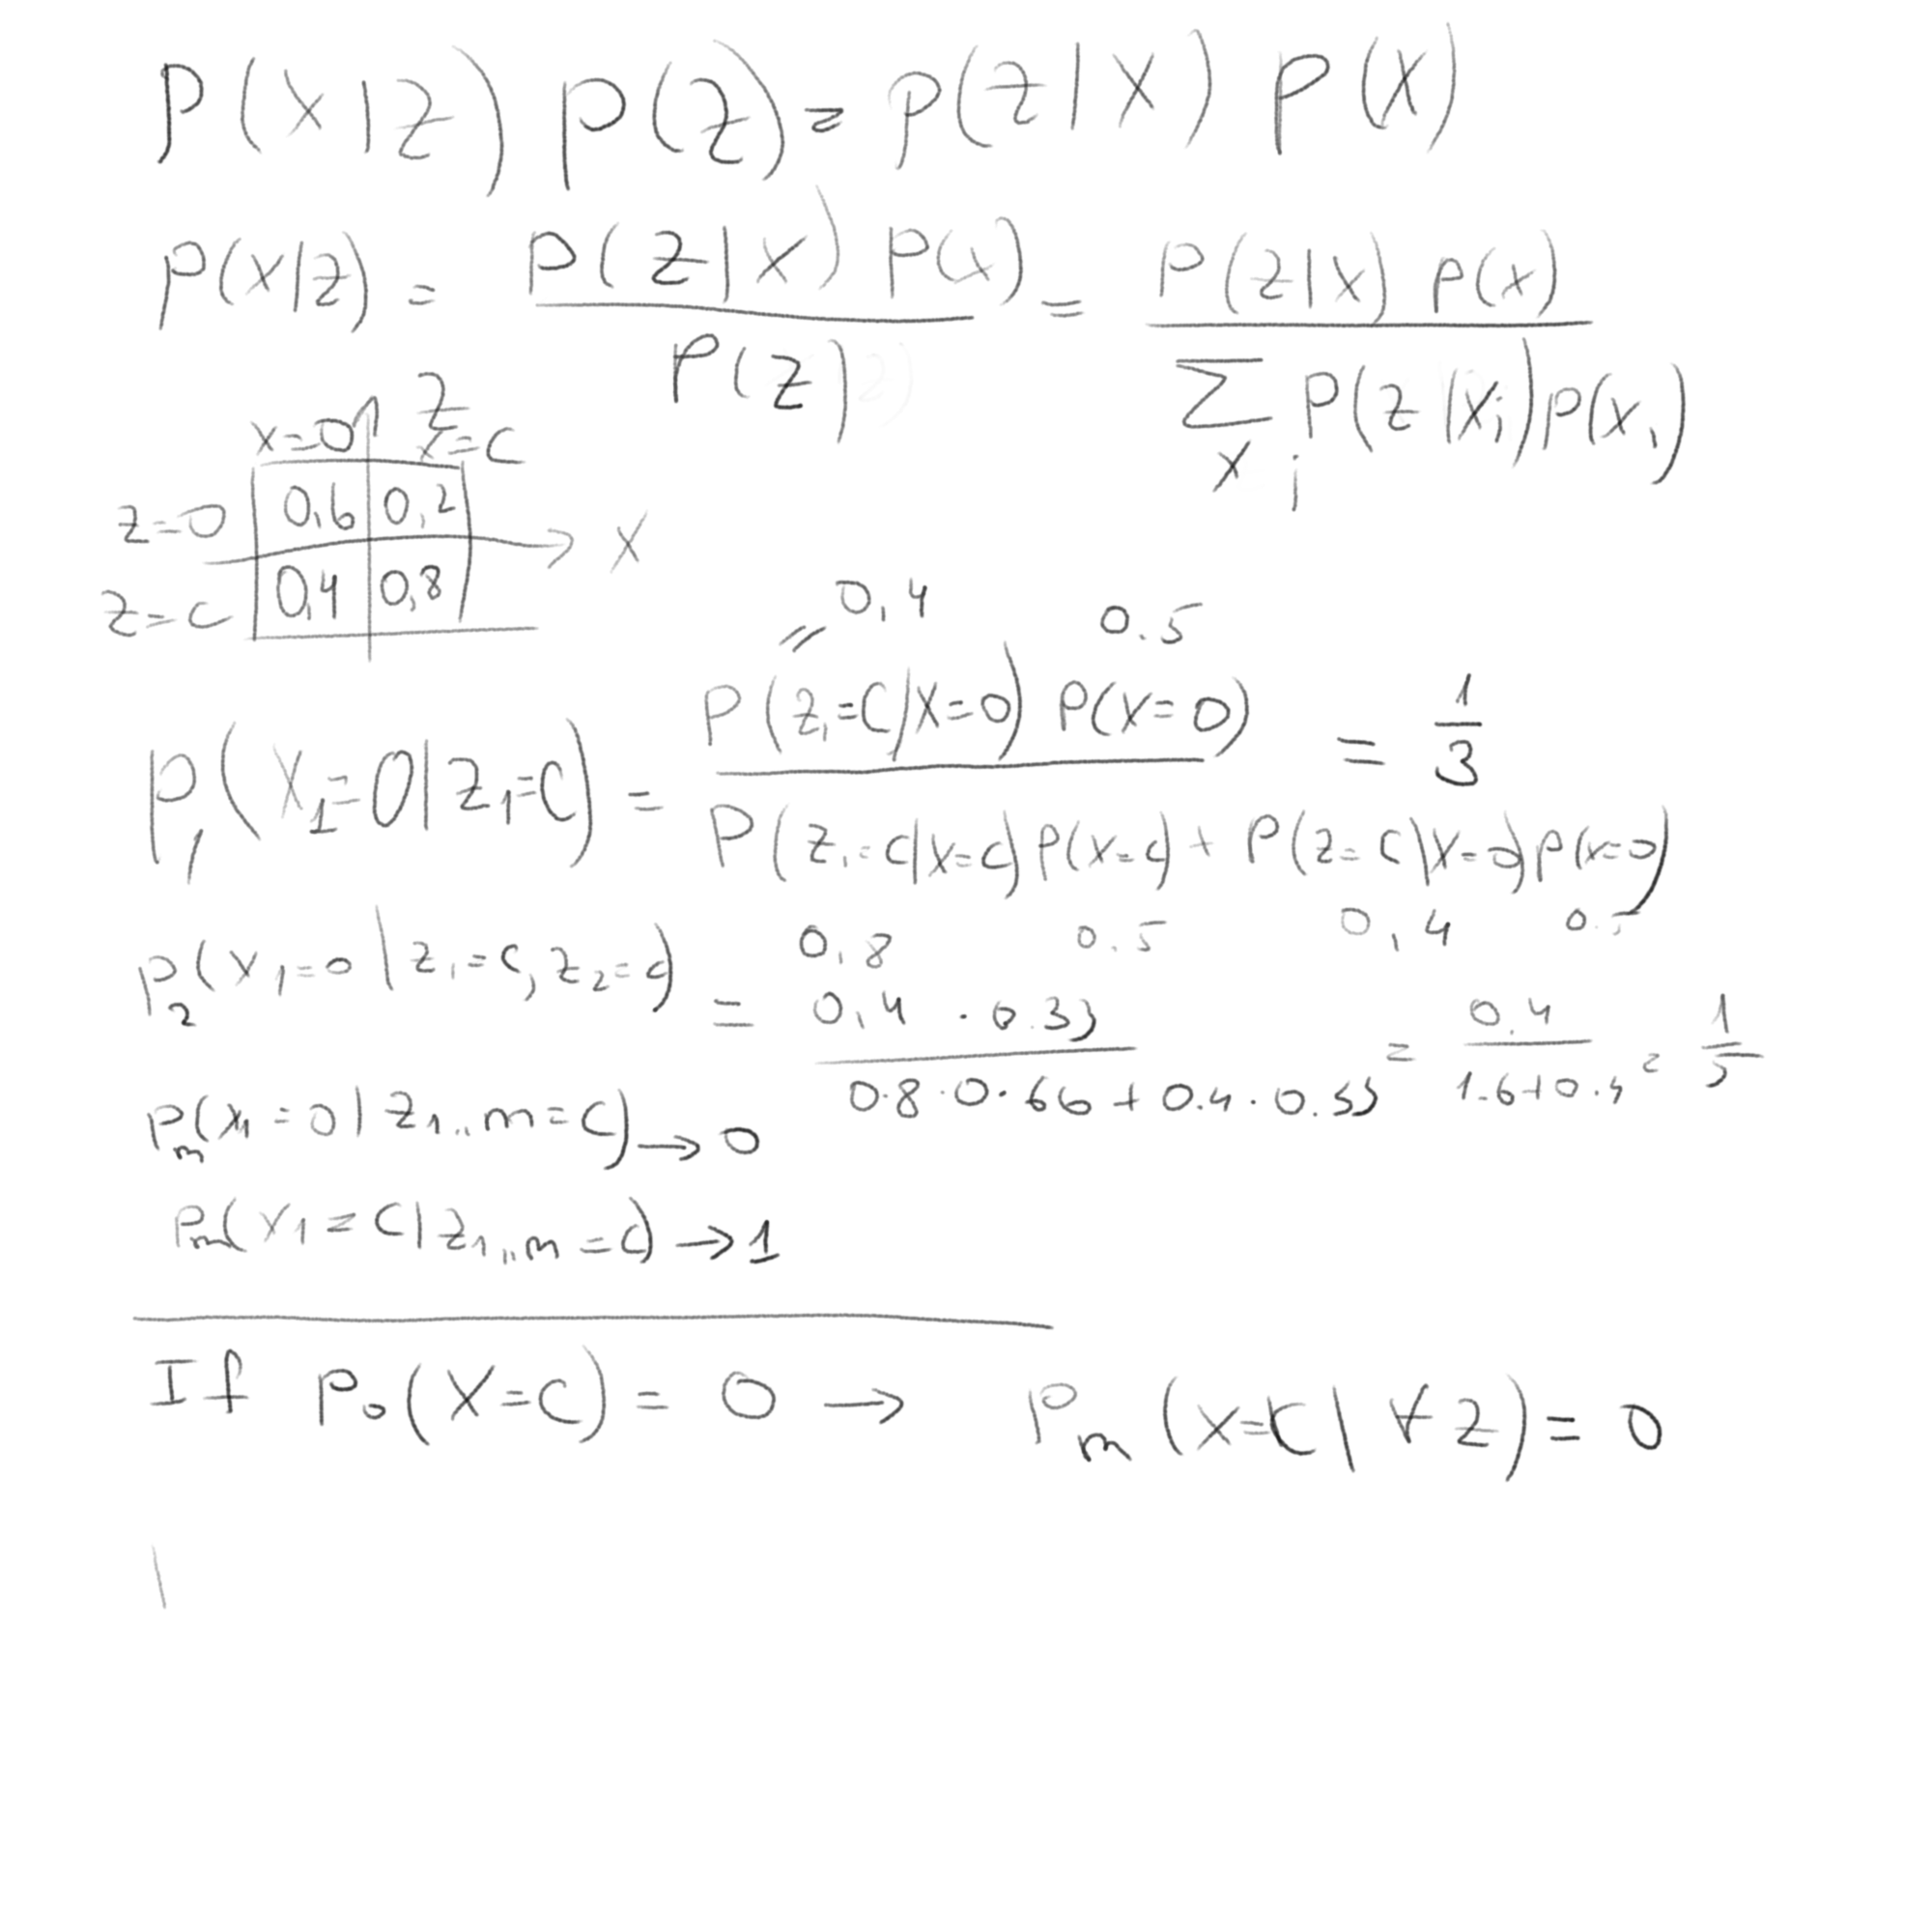 P(X|Z) P(Z) = P(Z|X) P(X)
P(X|Z) = P(Z|X) P(X) / P(Z) = P(Z|X) P(X) / ∑ Xi P(Z|Xi) P(Xi)
Z
X=0 X=C
Z=0 0,6 0,2
X
Z=C 0,4 0,8
= 0,4 0.5
P1(X1=0|Z1=C) = P(Z1=C|X=0) P(X=0) / P(Z1=C|X=C) P(X=C) + P(Z=C|X=0) P(X=0) = 1/3
0,8 0.5 0,4 0.5
P2(X1=0|Z1=C, Z2=C) = 0,4 · 0.33 / 0.8 · 0.66 + 0.4 · 0.33 = 0.4 / 1.6+0.4 = 1/5
Pm(X1=0|Z1..m=C) → 0
Pm(X1=C|Z1,,m=C) → 1
If P0(X=C) = 0 → Pm(X=C|∀Z) = 0